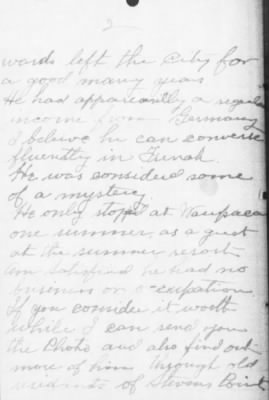 2
wards left the City for
a good many years
He had appareantly a regular
income from Germany
I beleive he can converse
fluently in Frinch.
He was considerd some
of a mystery.
He only stoppd at Waupaca
one summer, as a guest
at the summer resort
Am satisfied he had no
business or occupation.
If you consider it worth
while I can send you
the Photo and also find out
more of him through old
residents of Stevens Point